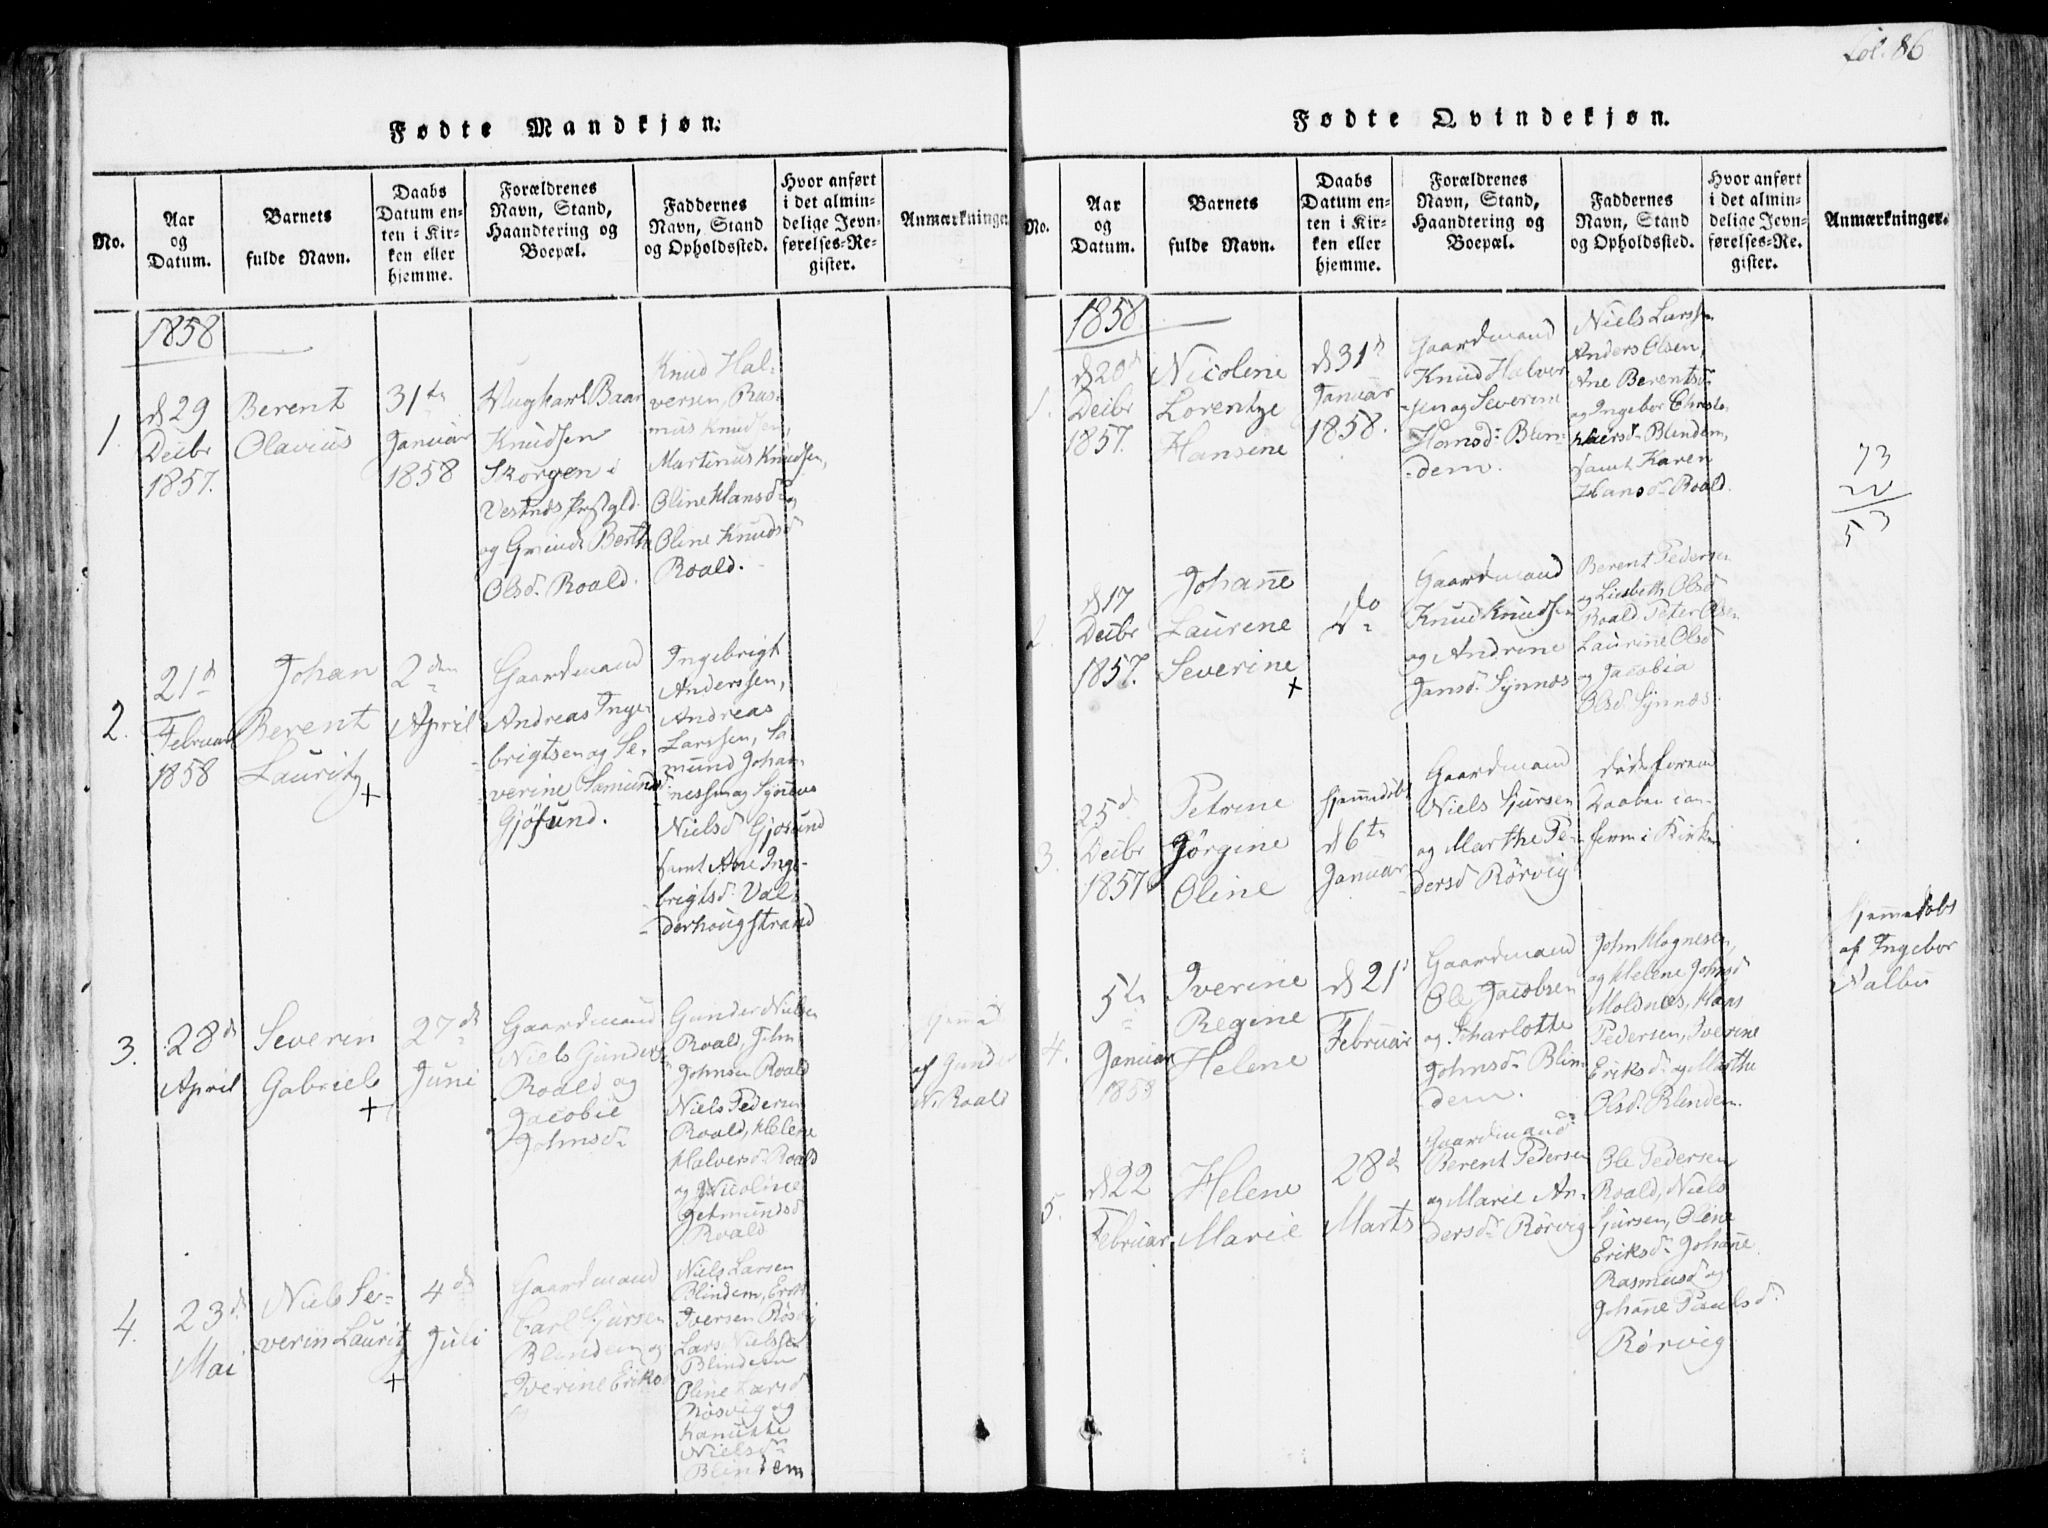 Fol. 86
Fødte Mandkjøn.
No.
Aar
og
Datum.
Barnets
fulde Navn.
Daabs
Datum en-
ten i Kir-
ken eller
hjemme.
Forældrenes
Navn, Stand,
Haandtering og
Boepæl.
Faddernes
Navn, Stand
og Opholdssted.
Hvor anført
i det almin-
delige Jevn-
førelses-Re-
gister.
Anmærkninger
1858
1.
d 29
Decbr
1857.
Berent
Olavius
31te
Januar
1858
Ungkarl Baar
Knudsen
Skorgen i
Vestnes Præstgld.
og Gmeinds Berthe
Olsd. Roald.
Knud Hal-
versen, Ras-
mus Knudsen,
Martinus Knudsen,
Oline Hansd og
Oline Knudsd
Roald.
2.
21d
Februar
1858
Johan
Berent
Lauritz
+
2den
April
Gaardmand
Andreas Inge-
brigtsen og Se-
verine Samunds
Gjøsund.
Ingebrigt
Anderssen,
Andreas
Larssen, Sa-
mund Johan-
nessen og Synneve
Nielsd Gjøsund
samt Ane Inge-
brigtsd. Val-
derhougstrand
3.
28d
April
Severin
Gabriel
+
27d
Juni
Gaardmand
Niels Gunders
Roald og
Jacobie
Johnsd
Gunder Nielsen
Roald, John
Johnsen Roald
Niels Pedersen
Roald, Helene
Halversd Roald
og Nicoline
Getmundsd
Roald
af Gunder
N. Roald
4.
23d
Mai
Niels Se-
verin Lauritz
+
4d
Juli
Gaardmand
Carl Sjursen
Blindem og
Iverine Eriks
Niels Larsen
Blindem, Erik
Iversen Røsvig
Lars Nielssen
Blindem
Oline Larsd
Røsvig og
Hanikke
Nielsd
Blindem
Fødte Qvindekjøn.
No.
Aar
og
Datum.
Barnets
fulde Navn.
Daabs
Datum en-
ten i Kir-
ken eller
hjemme.
Forældrenes
Navn, Stand,
Haandtering og
Boepæl.
Faddernes
Navn, Stand
og Opholdssted.
Hvor anført
i det almin-
delige Jevn-
førelses-Re-
gister.
Anmærkninger.
1858
1.
d 20d
Decbr
1857.
Nicoline
Lorentze
Hansine
d 31d
Januar
1858.
Gaardmand
Knud Halver
sen og Severine
Hansd. Blin-
dem.
Niels Larssen
Anders Olsen,
Ane Berentsd
og Ingebor Christo-
phersd. Blindem,
samt Karen
Hansd. Roald.
73
5
2.
d 17
Decbr
1857.
Johanne
Laurine
Severine
+
do
Gaardmand
Knud Knudsen
og Andrine
Jansd. Synnes
Berent Pedersen
og Liesbeth Olsd
Roald, Peter Olsen
Laurine Olsd
og Jacobia
Olsd. Synnes.
3.
25d
Decbr
1857
Petrine
Jørgine
Oline
hjemmedøbt
d 6te
Januar
Gaardmand
Niels Sjursen
og Marthe Pe-
dersd Rørvig
døde førend
Daaben i
i Kirken
4.
5te
Januar
1858
Iverine
Regine
Helene
d 21
Februar
Gaardmand
Ole Jacobsen
og Scharlotte
Johnsd. Blin-
dem.
John Mognesen,
og Helene Johnsd
Moldnes, Hans
Pedersen, Iverine
Eriksd og Marthe
Olsd. Blindem.
hjemmedøbt
af Ingebor
Nalbu
5.
d 22
Februar
Helene
Marie
28d
Marts
Gaardmand
Berent Pedersen
og Marie An-
dersd. Rørvig
Ole Pedersen
Roald, Niels
Sjursen, Oline
Eriksd. Johanne
Rasmusd og
Johanne Paulsd.
Rørvig